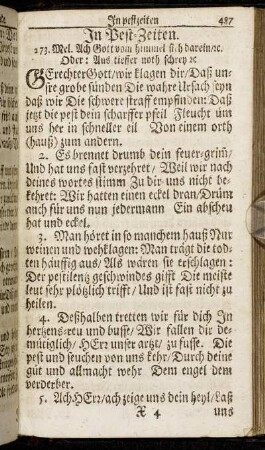 In pestzeiten 487
In Pest-Zeiten.
273. Mel. Ach Gott vom himmel sieh darein/ꝛc.
Oder: Aus tieffer noth schrey ꝛc
GErechter Gott/ wir klagen dir/ Daß un-
sre grobe sünden Die wahre Ursach seyn
daß wir Die schwere straff empfinden: Daß
jetzt die pest dein scharffer pfeil Fleucht üm
uns her in schneller eil Von einem orth
(hauß) zum andern.
2. Es brennet drumb dein feuer-grim̃/
Und hat uns fast verzehret/ Weil wir nach
deines wortes stimm Zu dir uns nicht be-
kehret: Wir hatten einen eckel dran/ Drüm
auch für uns nun jedermann Ein abscheu
hat und eckel.
3. Man höret in so manchem hauß Nur
weinen und wehklagen: Man trägt die tod-
ten hauffig aus/ Als wären sie erschlagen:
Der pestilentz geschwindes gifft Die meiste
leut sehr plötzlich trifft/ Und ist fast nicht zu
heilen.
4. Deßhalben tretten wir für dich In
hertzens-reu und busse/ Wir fallen dir de-
mütiglich/ HErr unser artzt/ zu fusse. Die
pest und seuchen von uns kehr/ Durch deine
güt und allmacht wehr Dem engel dem
verderber.
5. Ach HErr/ ach zeige uns dein heyl/ Laß
X 4 uns